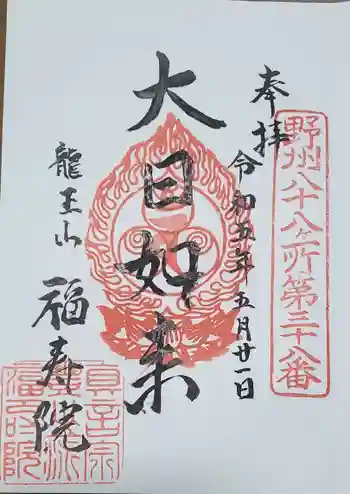 奉拝
野州八十八ヶ所第三十八番
令和五年五月廿一日
大日如来
龍王山
福寿院
真言宗